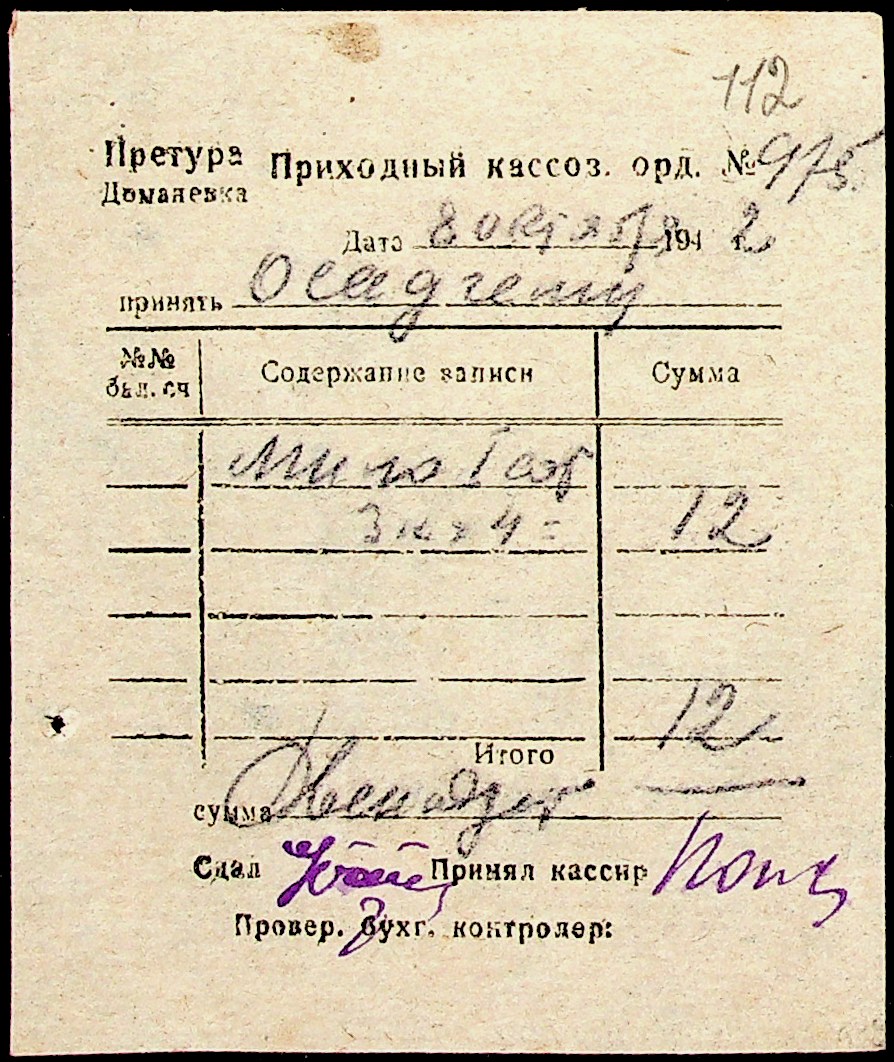 112
Претура Приходный кассоз. орд. № 975
Доманевка
Дата 8 октября 194 2 г.
принять Осадчему
№№ бал. сч Содержание записи Сумма
3 х 4 = 12
Итого 12
сумма Двенадцат
Сдал Принял кассир
Провер. бухг. контролер: